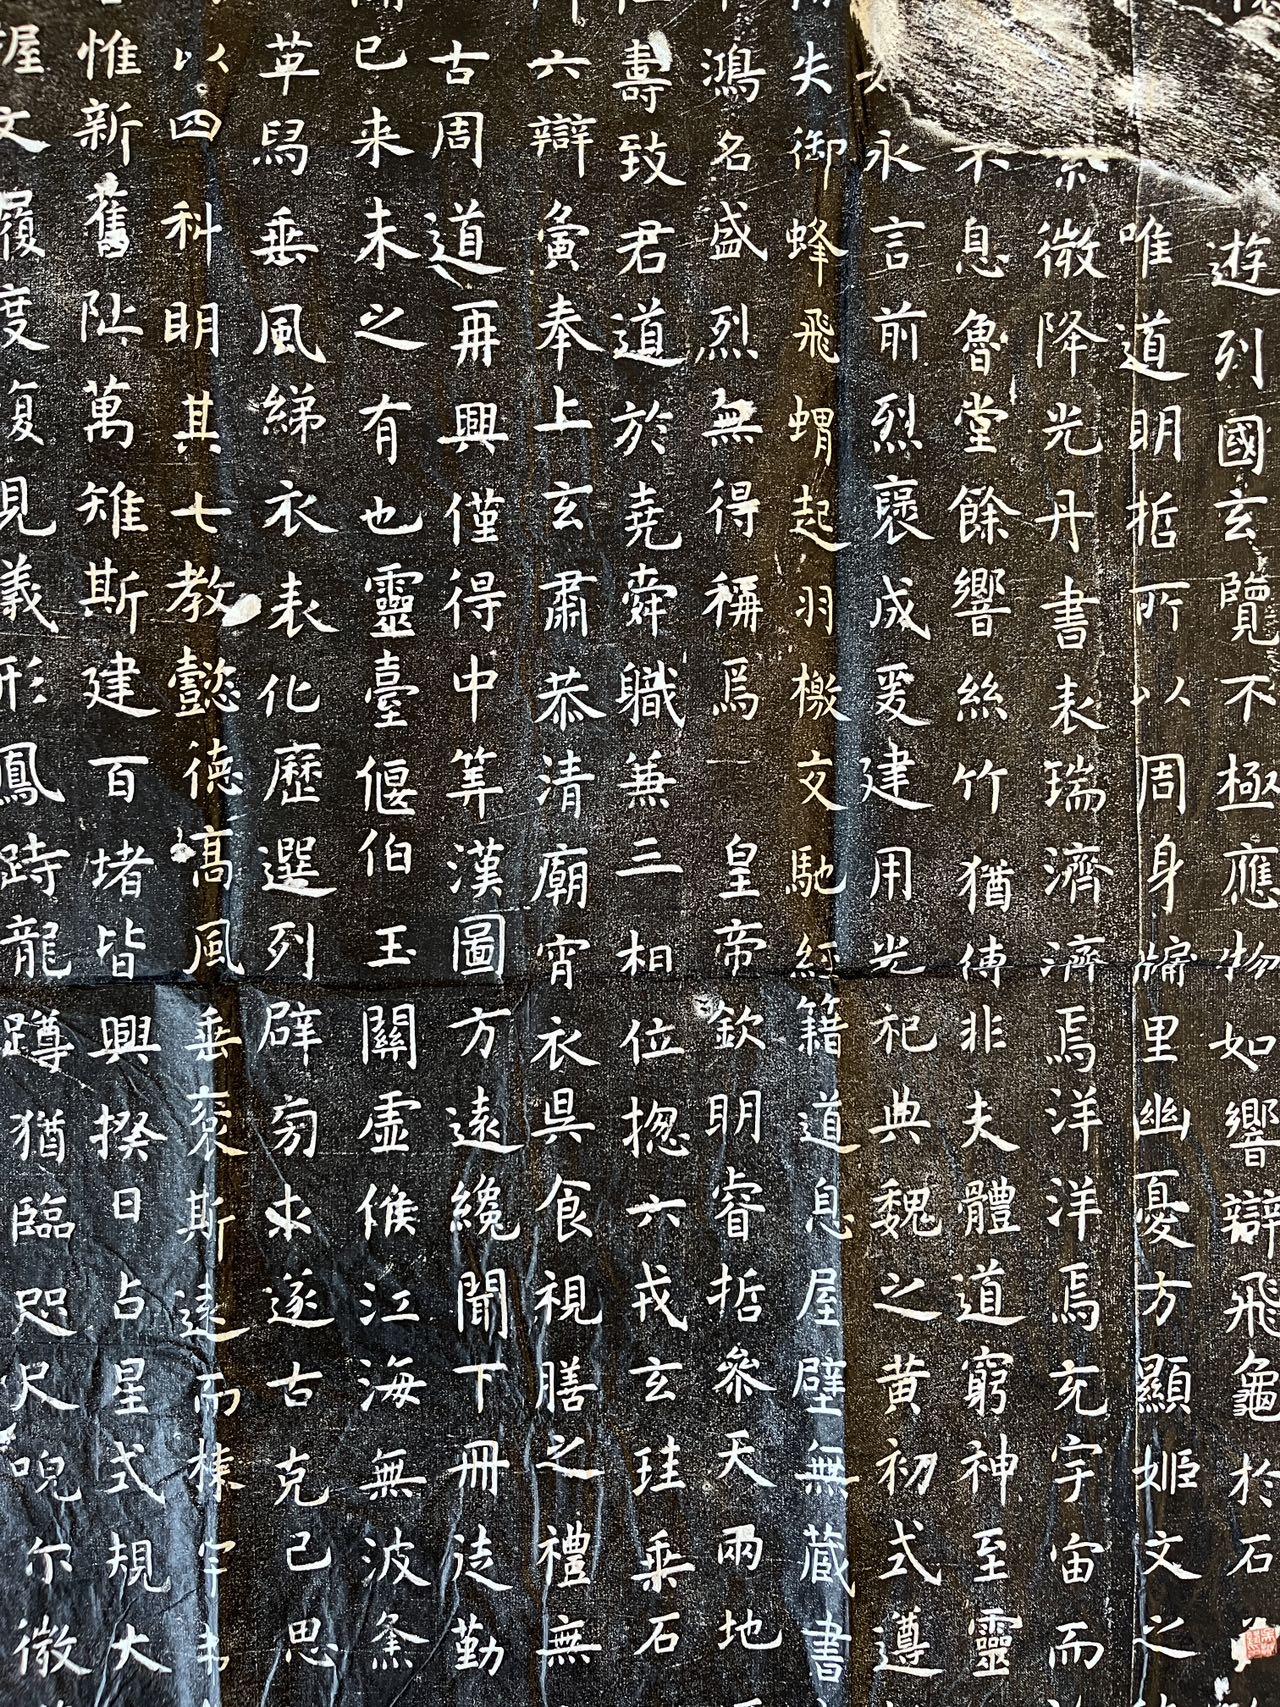 遊列國玄覽不極應物如響辯飛龜於石
唯道明哲所以周身牖里幽憂方顯姬文之
微降光丹書表瑞濟濟焉洋洋焉充宇宙而
不息魯堂餘響絲竹猶傳非夫體道窮神至靈
永言前烈褒成爰建用光祀典魏之黃初式遵
失御蜂飛蝟起羽檄交馳經籍道息屋壁無藏書
鴻名盛烈無得稱焉一皇帝欽明睿哲參天兩地
壽致君道於堯舜職兼三相位揔六戎玄珪乗石
六辯寅奉上玄肅恭清廟宵衣昃食視膳之禮無
古周道再興僅得中筭漢圖方遠纔聞下冊徒勤
已来未之有也靈臺偃伯玉關虛候江海無波烽
革舄垂風綈衣表化歷選列辟旁求遂古克己思
以四科明其七教懿德高風垂裒斯遠而棟宇
惟新舊阯萬雉斯建百堵皆興揆日占星式規大
握文履度復見義形鳳跱龍蹲猶臨咫尺唲尓微